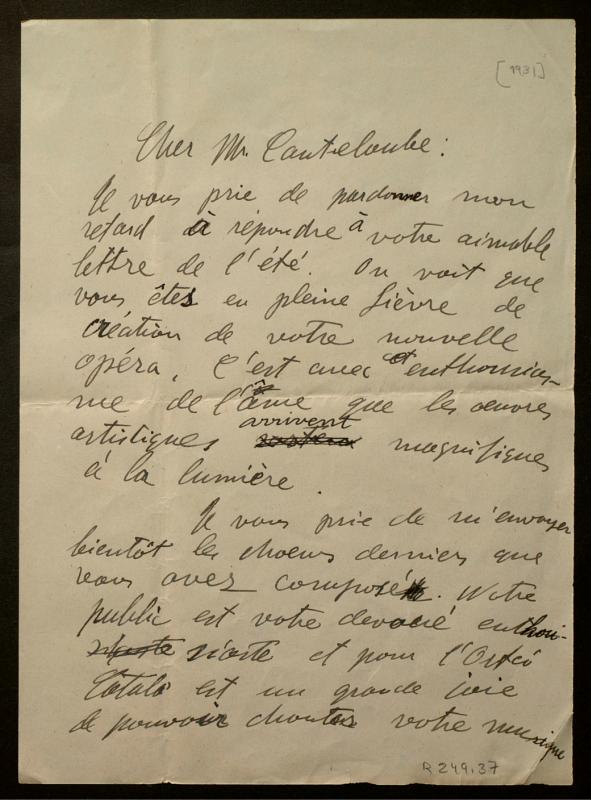 [1931]
Cher Mr. Canteloube:
Je vous prie de pardonner mon
retard à répondre à votre aimable
lettre de l'été. On voit que
vous êtes en pleine fièvre de
création de votre nouvelle
opéra. C'est avec cet enthousias-
me de l'âme que les oeuvres
artistiques arrivent magnifiques
à la lumière.
Je vous prie de m'envoyer
bientôt les choeurs derniers que
vous avez composé. Notre
public est votre devoué enthou-
siaste et pour l'Orfeó
Català est un grande joie
de pouvoir chanter votre musique
R 249.37